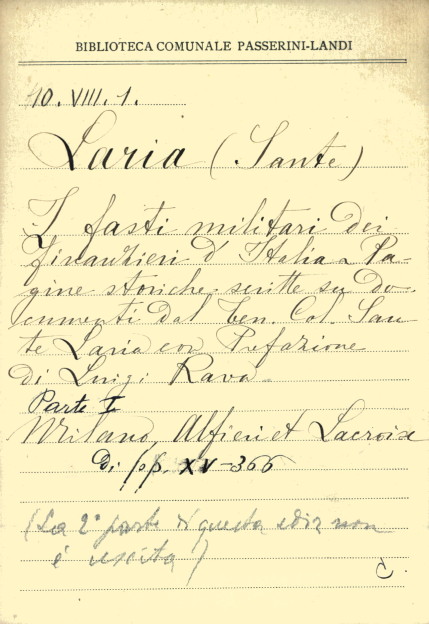 BIBLIOTECA COMUNALE PASSERINI-LANDI
10. VIII. 1.
Laria (Sante)
I fasti militari dei
finanzieri d'Italia - Pa-
gine storiche scritte su do-
cumenti dal Ten. Col. San
te Laria con Prefazione
di Luigi Rava -
Parte I
Milano, Alfieri et Lacroix
Di pp. XV-366
(La 2ª parte di questa ediz non
è uscita)
C.